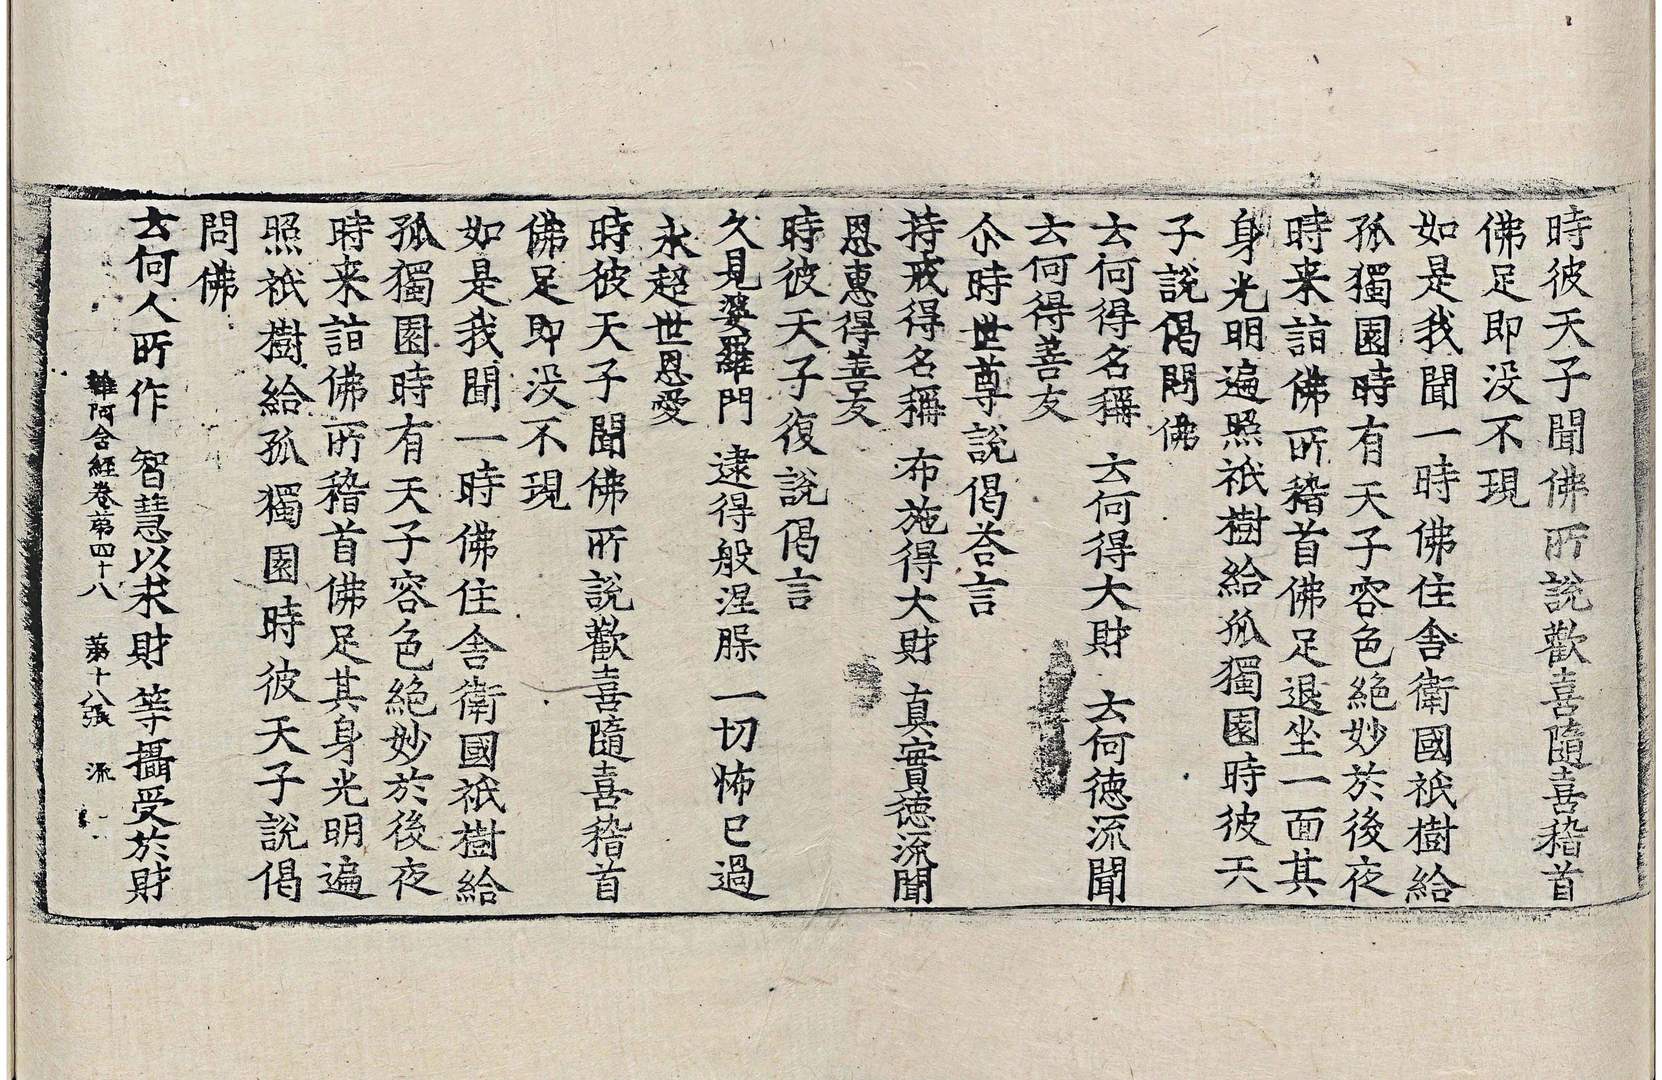 時彼天子聞佛所說歡喜隨喜稽首
佛足即没不現
如是我聞一時佛住舎衛國祇樹給
孤獨園時有天子容色絶妙於後夜
時来詣佛所稽首佛足退坐一面其
身光明遍照祇樹給孤獨園時彼天
子說偈問佛
云何得名稱 云何得大財 云何德流聞
云何得善友
尒時世尊說偈荅言
持戒得名稱 布施得大財 真實德流聞
恩惠得善友
時彼天子復說偈言
久見婆羅門 逮得般涅槃 一切怖已過
永超世恩愛
時彼天子聞佛所說歡喜隨喜稽首
佛足即没不現
如是我聞一時佛住舎衛國祇樹給
孤獨園時有天子容色絶妙於後夜
時来詣佛所稽首佛足其身光明遍
照祇樹給孤獨園時彼天子說偈
問佛
云何人所作 智慧以求財 等攝受於財
雜阿含經卷苐四十八 苐十八張 流